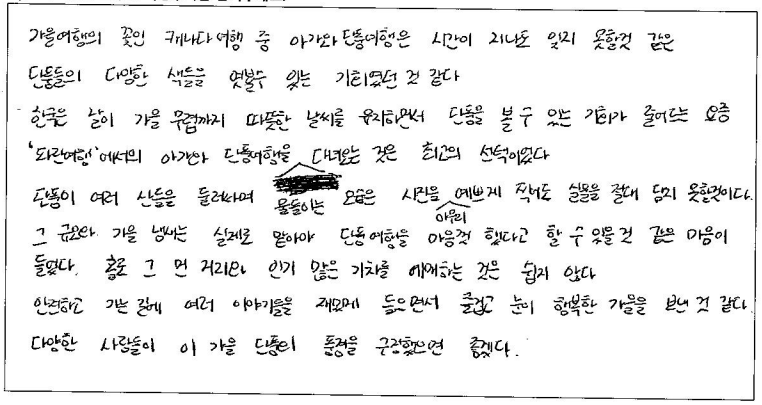 가을여행의 꽃인 캐나다 여행 중 아가와 단풍여행은 시간이 지나도 잊지 못할것 같은
단풍들의 다양한 색들을 엿볼수 있는 기회였던 것 같다
한국은 날이 가을 무렵까지 따뜻한 날씨를 유지하면서 단풍을 볼 수 있는 기회가 줄어드는 요즘
'파란여행'에서의 아가와 단풍여행을 다녀오는 것은 최고의 선택이었다
단풍이 여러 산들을 둘러싸며 물들이는 모습은 사진을 아무리 예쁘게 찍어도 실물을 절대 담지 못할것이다.
그 규모와 가을 냄새는 실제로 맡아야 단풍여행을 마음껏 했다고 할 수 있을 것 같은 마음이
들었다. 홀로 그 먼 거리와 인기 많은 기차를 예매하는 것은 쉽지 않다
안전하고 가는 길에 여러 이야기들을 재밌게 들으면서 즐겁고 눈이 행복한 가을을 보낸 것 같다
다양한 사람들이 이 가을 단풍의 풍경을 구경했으면 좋겠다.